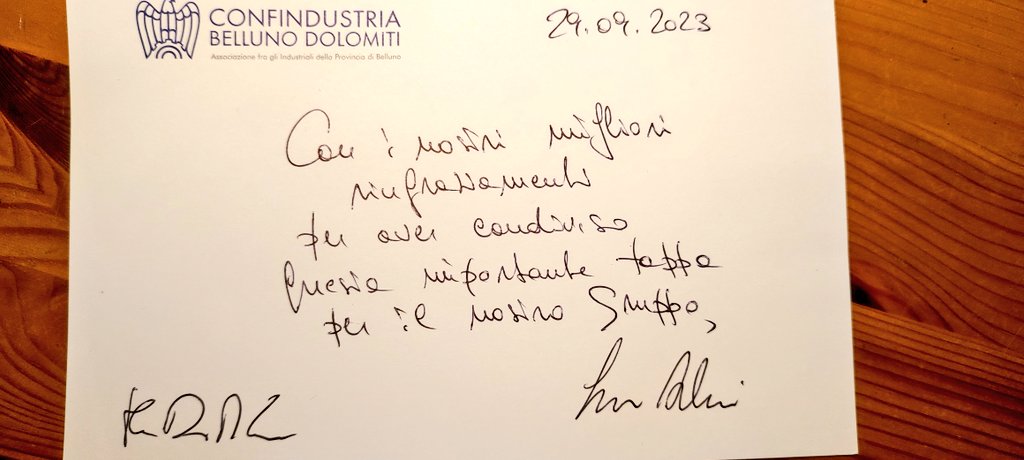 CONFINDUSTRIA
BELLUNO DOLOMITI
Associazione fra gli Industriali della Provincia di Belluno
29.09.2023
Con i nostri migliori
ringraziamenti
per aver condiviso
questa importante tappa
per il nostro Gruppo,